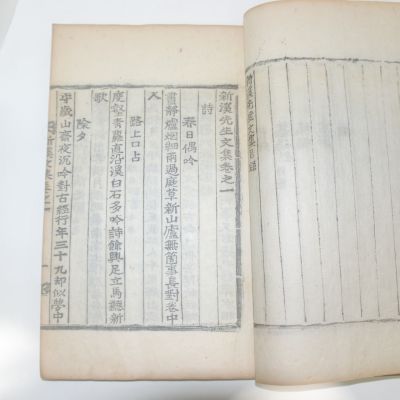 新溪先生文集目錄
新溪先生文集卷之一
詩
春日偶吟
晝靜爐烟細雨過庭草新山廬無箇事長對卷中
人
路上口占
度壑靑驢直沿溪白石多吟詩餘興足立馬聽新
歌
除夕
守歲山齋夜沉吟對古經行年三十九却似夢中
新溪文集卷之一